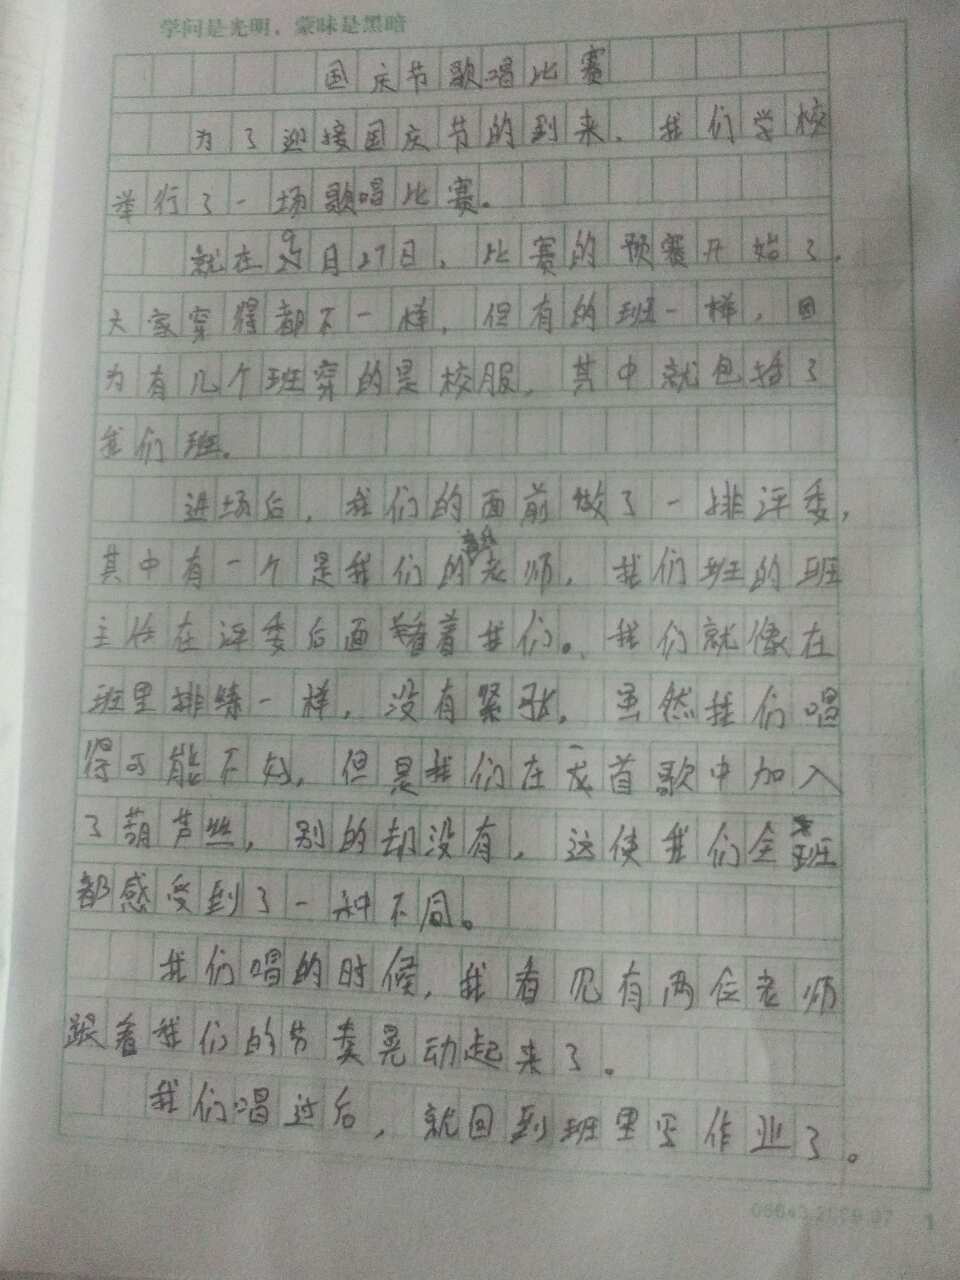 学问是光明，蒙昧是黑暗
国庆节歌唱比赛
为了迎接国庆节的到来，我们学校
举行了一场歌唱比赛。
就在9月27日，比赛的预赛开始了，
大家穿得都不一样，但有的班一样，因
为有几个班穿的是校服，其中就包括了
我们班。
进场后，我们的面前做了一排评委，
其中有一个是我们的音乐老师，我们班的班
主任在评委后面看着我们。我们就像在
班里排练一样，没有紧张。虽然我们唱
得可能不好，但是我们在一首歌中加入
了葫芦丝，别的却没有，这使我们全班
都感受到了一种不同。
我们唱的时候，我看见有两位老师
跟着我们的节奏晃动起来了。
我们唱过后，就回到班里写作业了。
1